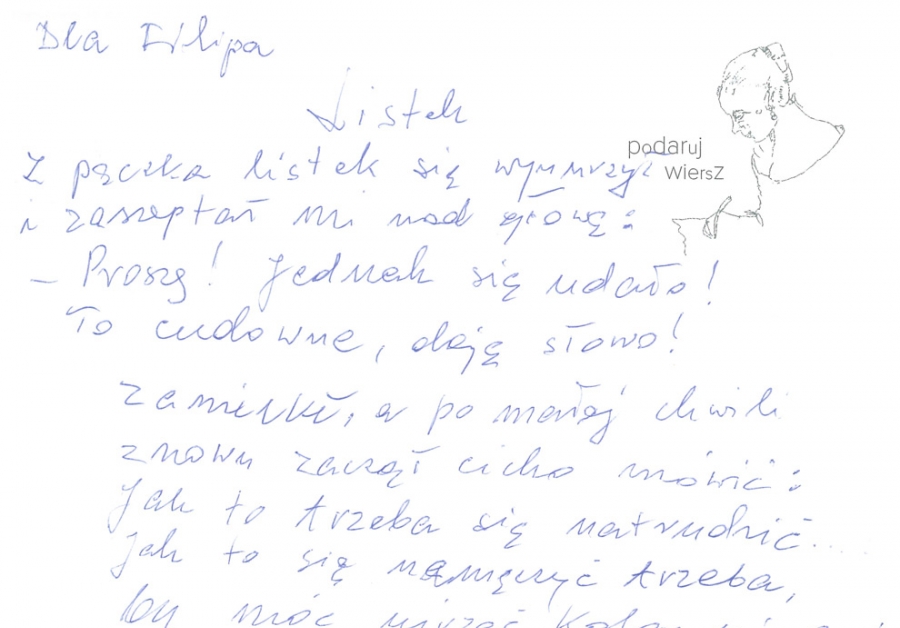 Dla Filipa
Listek
podaruj
wiersz
Z pączka listek się wynurzył
i zaszeptał mi nad głową:
– Proszę! Jednak się udało!
To cudowne, daję słowo!
Zamilkł, a po małej chwili
znowu zaczął cicho mówić:
Jak to trzeba się natrudzić...
Jak to się namęczyć trzeba,
by móc ujrzeć